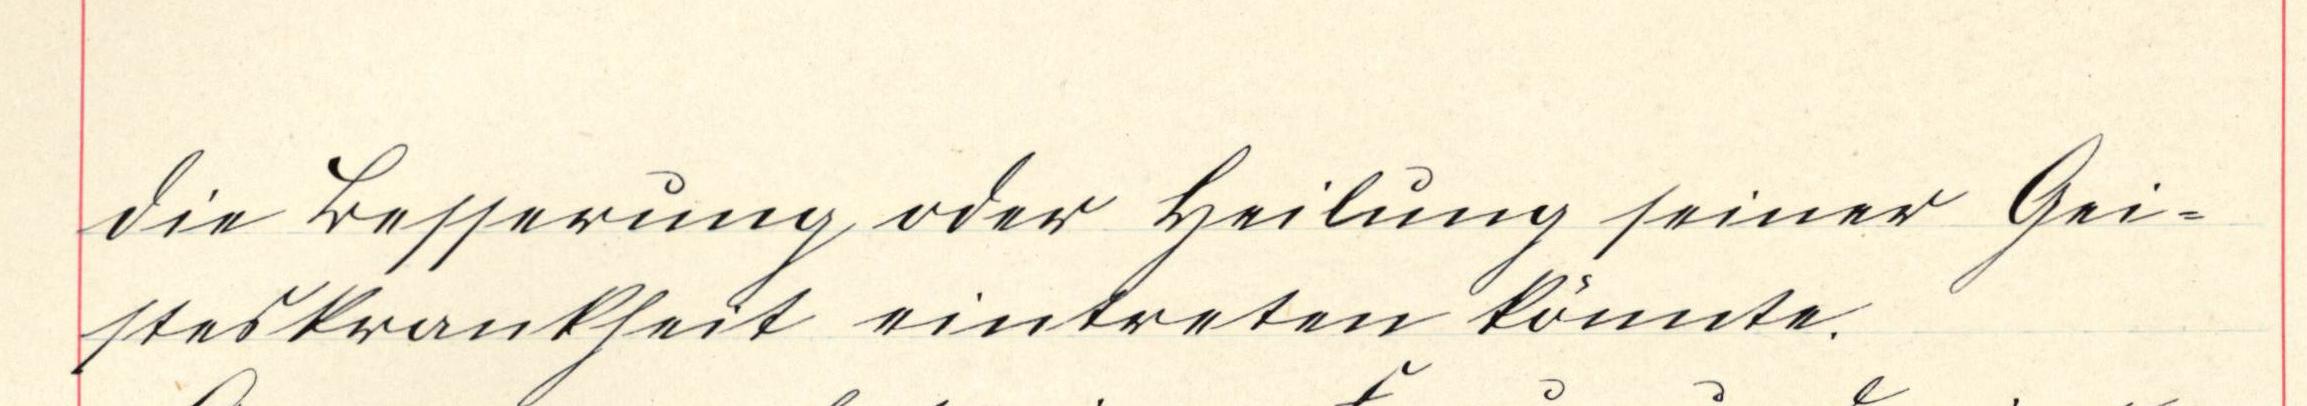 die Besserung oder Heilung seiner Gei-
steskrankheit eintreten könnte.